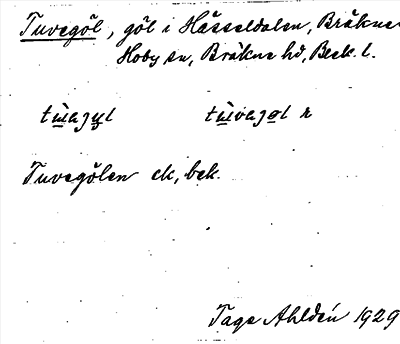 Tuvegöl, göl i Hässeldalen, Bräkne
Hoby sn, Bräkne hd, Blek. l.
tu̱vagɥl tu̱vagøl r
Tuvegölen ek, bek.
Tage Ahldén 1929